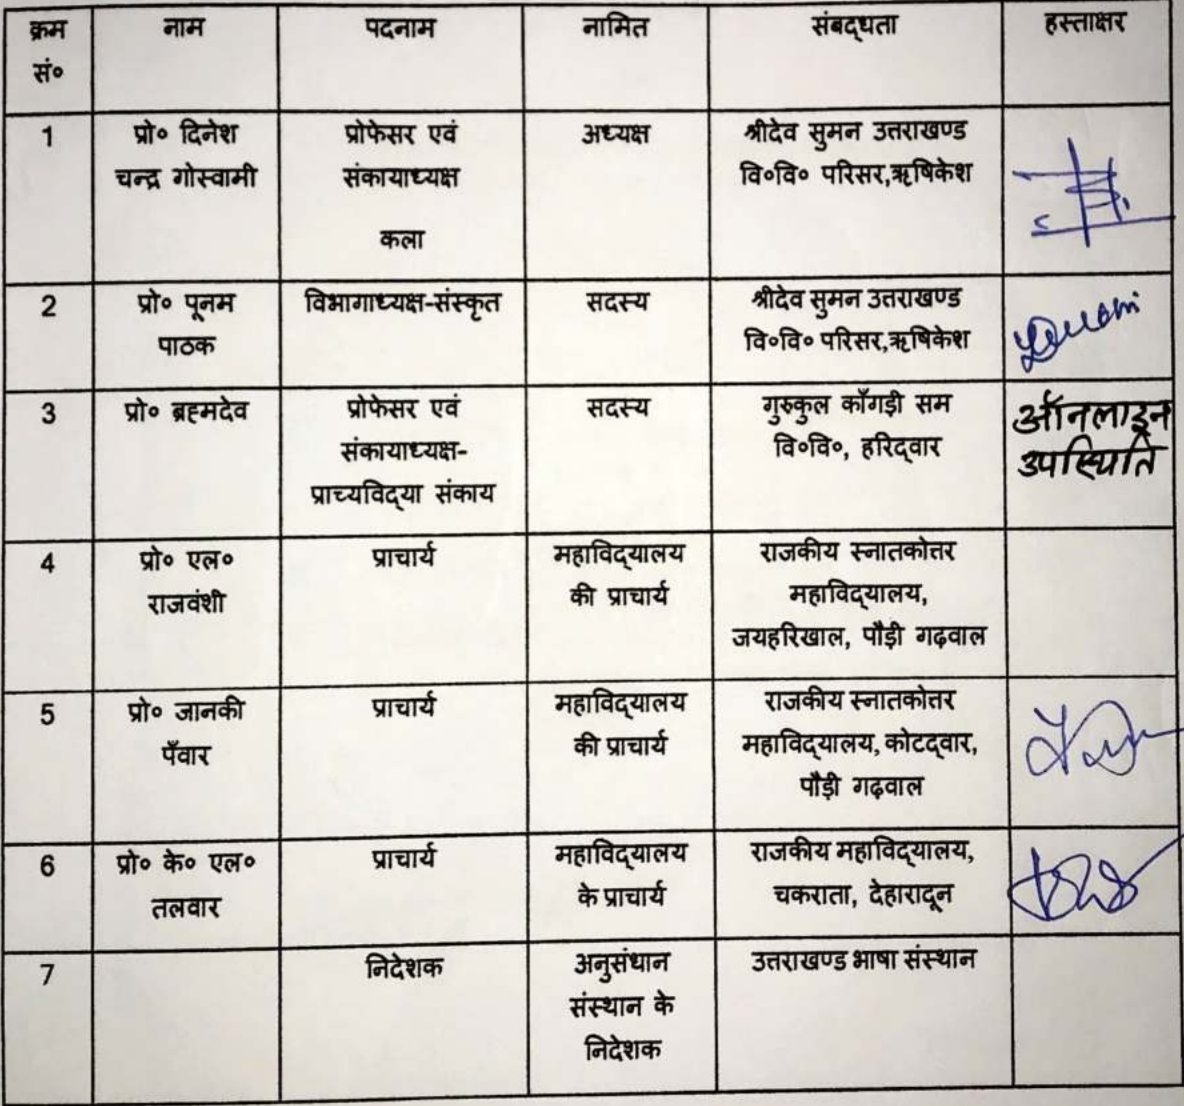 क्रम सं० नाम पदनाम नामित संबद्धता हस्ताक्षर
1 प्रो० दिनेश चन्द्र गोस्वामी प्रोफेसर एवं संकायाध्यक्ष कला अध्यक्ष श्रीदेव सुमन उत्तराखण्ड वि०वि० परिसर,ऋषिकेश
2 प्रो० पूनम पाठक विभागाध्यक्ष-संस्कृत सदस्य श्रीदेव सुमन उत्तराखण्ड वि०वि० परिसर,ऋषिकेश
3 प्रो० ब्रह्मदेव प्रोफेसर एवं संकायाध्यक्ष- प्राच्यविद्या संकाय सदस्य गुरुकुल काँगड़ी सम वि०वि०, हरिद्वार ऑनलाइन उपस्थिति
4 प्रो० एल० राजवंशी प्राचार्य महाविद्यालय की प्राचार्य राजकीय स्नातकोत्तर महाविद्यालय, जयहरिखाल, पौड़ी गढ़वाल
5 प्रो० जानकी पँवार प्राचार्य महाविद्यालय की प्राचार्य राजकीय स्नातकोत्तर महाविद्यालय, कोटद्वार, पौड़ी गढ़वाल
6 प्रो० के० एल० तलवार प्राचार्य महाविद्यालय के प्राचार्य राजकीय महाविद्यालय, चकराता, देहारादून
7 निदेशक अनुसंधान संस्थान के निदेशक उत्तराखण्ड भाषा संस्थान